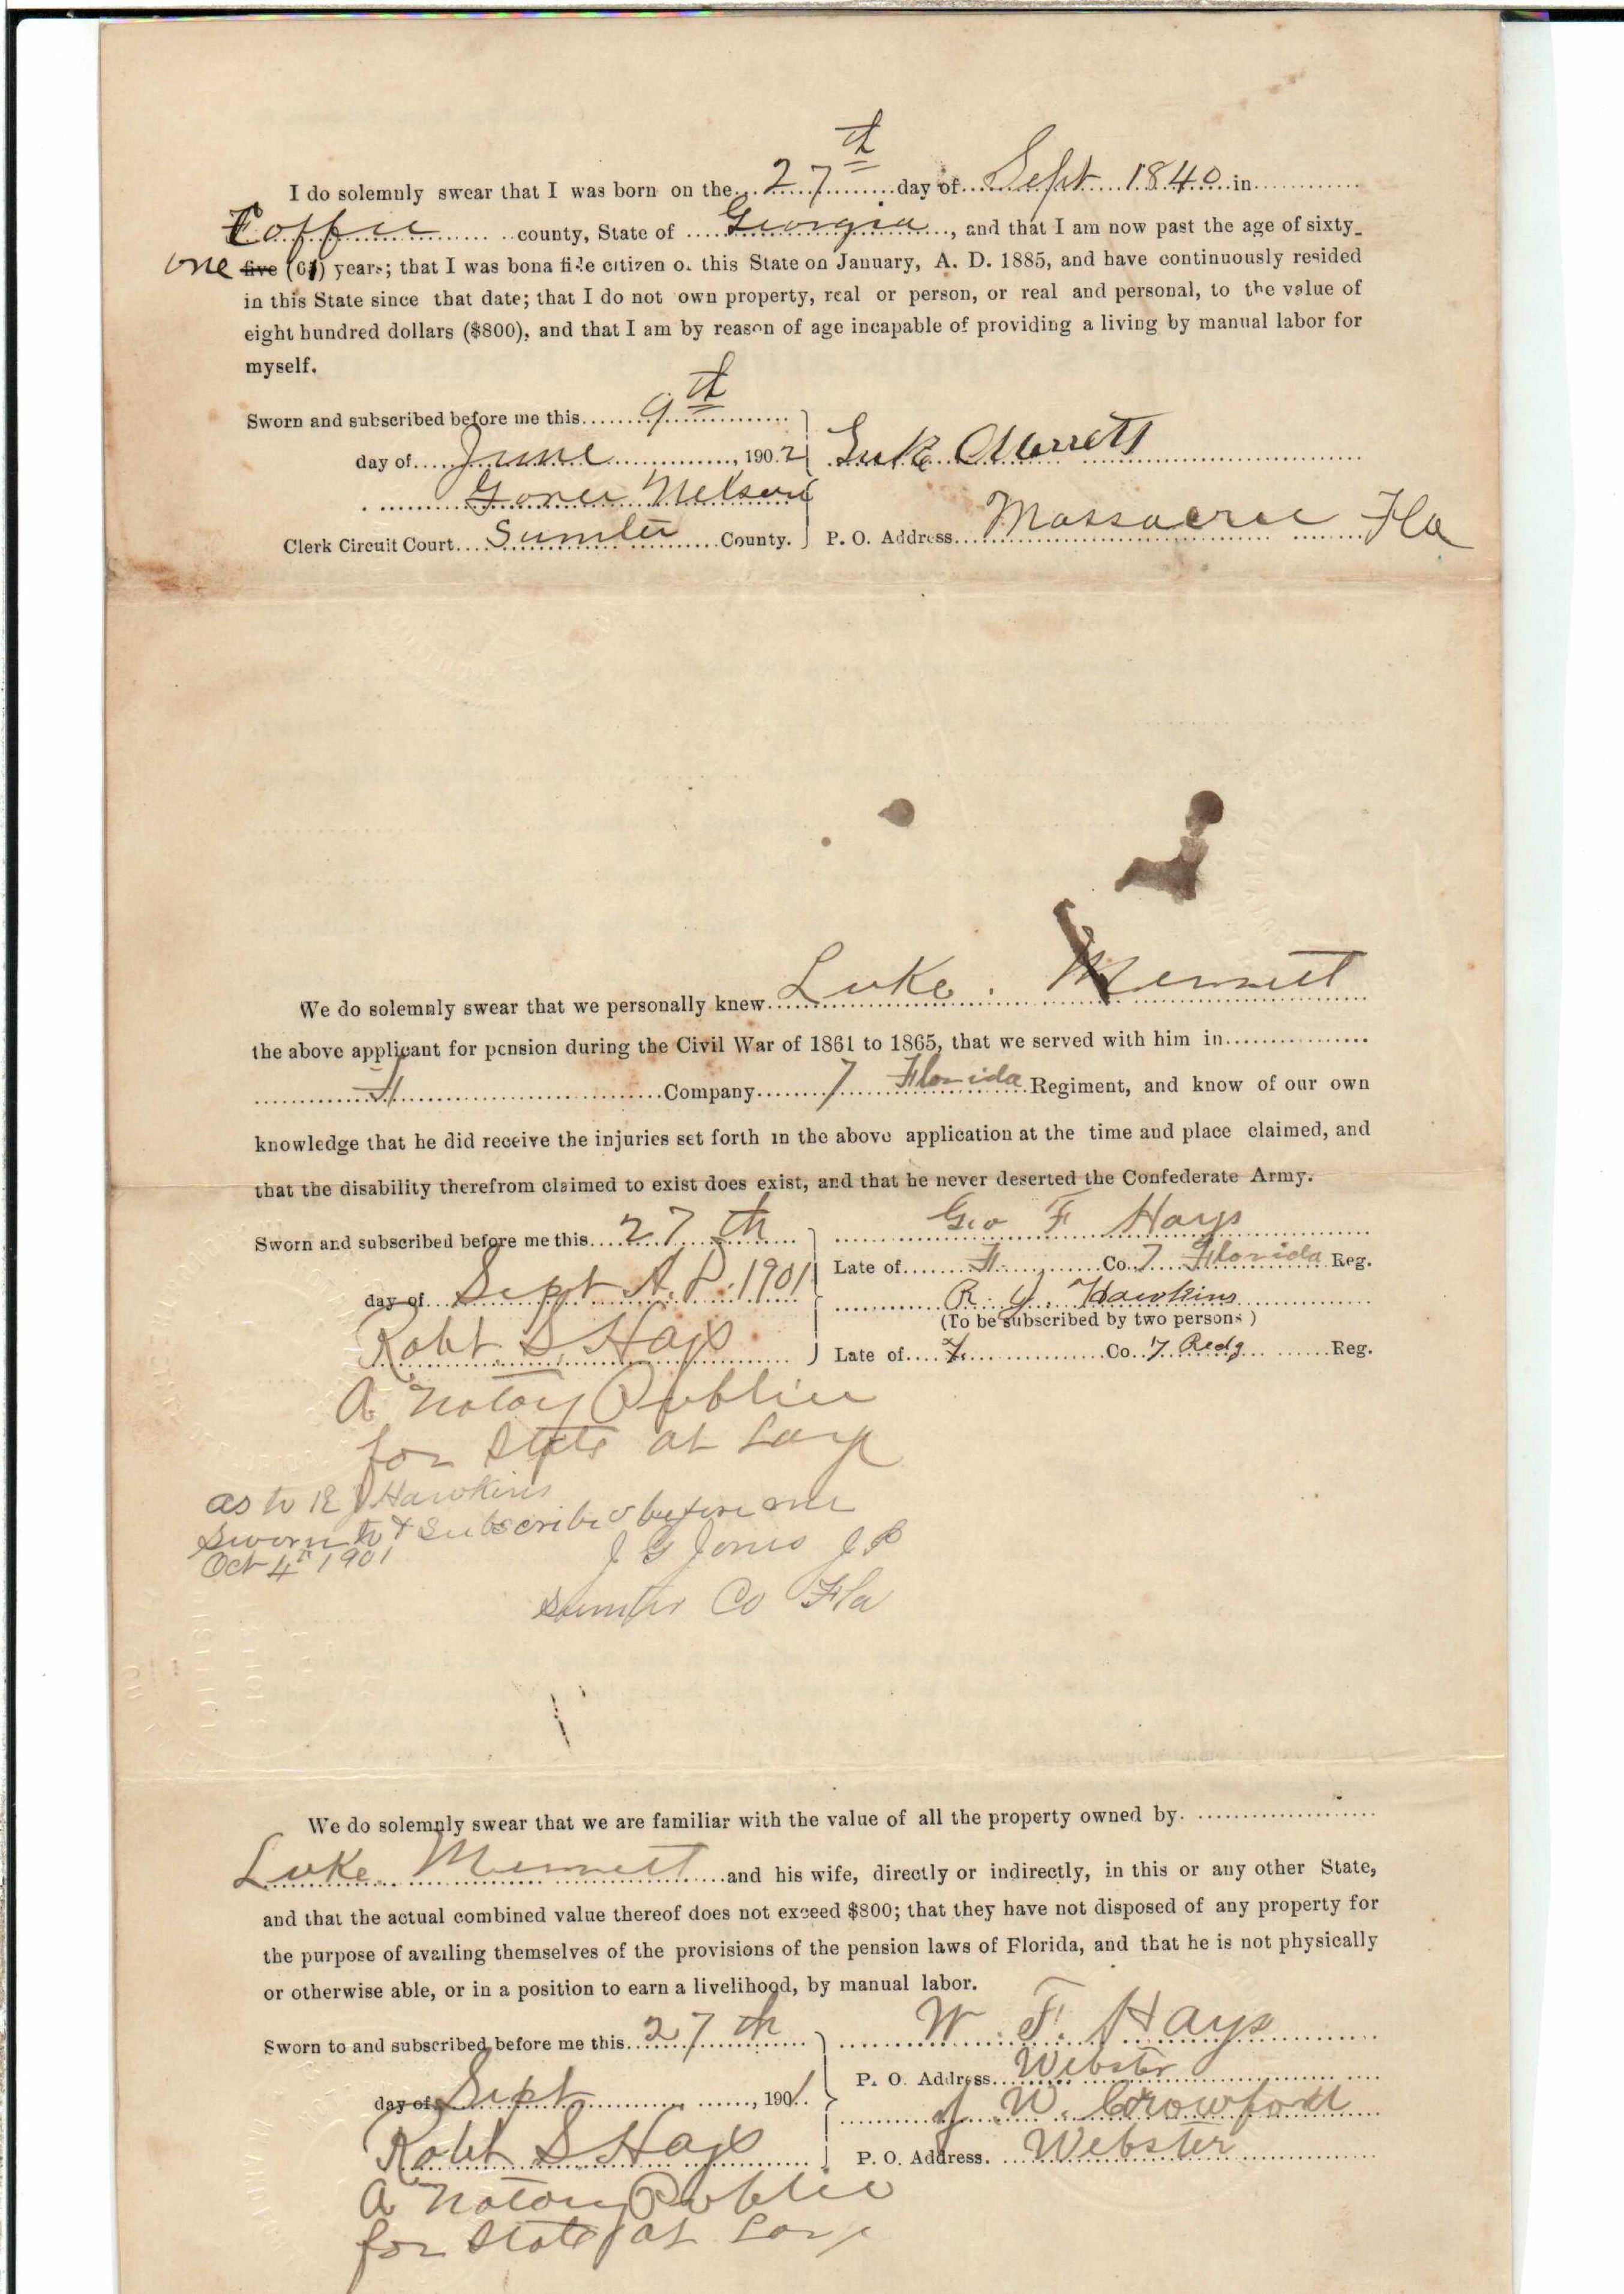 I do solemnly swear that I was born on the 27th day of Sept 1840 in
Coffee county, State of Georgia, and that I am now past the age of sixty-
one five (61) years; that I was bona fide citizen of this State on January, A. D. 1885, and have continuously resided
in this State since that date; that I do not own property, real or person, or real and personal, to the value of
eight hundred dollars ($800), and that I am by reason of age incapable of providing a living by manual labor for
myself.
Sworn and subscribed before me this 9th
day of June, 1902 Luke Merrett
Nelson
Clerk Circuit Court Sumter County. P. O. Address Massacree Fla
We do solemnly swear that we personally knew Luke
the above applicant for pension during the Civil War of 1861 to 1865, that we served with him in
Company 7 Florida Regiment, and know of our own
knowledge that he did receive the injuries set forth in the above application at the time and place claimed, and
that the disability therefrom claimed to exist does exist, and that he never deserted the Confederate Army.
Sworn and subscribed before me this 27th Geo F Hays
Late of F Co 7 Florida Reg.
day of Sept A. D. 1901
R. J. Hawkins
(To be subscribed by two persons)
Robt. S. Hays
Late of F. Co. 7 Reg.
A Notary Publice
for State at Large
as to R J Hawkins
Sworn to & Subscribed before me
Oct 4th 1901 J G Jones J P
Sumter Co Fla
We do solemnly swear that we are familiar with the value of all the property owned by
Luke and his wife, directly or indirectly, in this or any other State,
and that the actual combined value thereof does not exceed $800; that they have not disposed of any property for
the purpose of availing themselves of the provisions of the pension laws of Florida, and that he is not physically
or otherwise able, or in a position to earn a livelihood, by manual labor.
Sworn to and subscribed before me this 27th W. F. Hays
P. O. Address Webster
day of Sept, 1901.
J. W. Crowford
Robt S Hays
P. O. Address. Webster
A Notory Publie
for State at Large